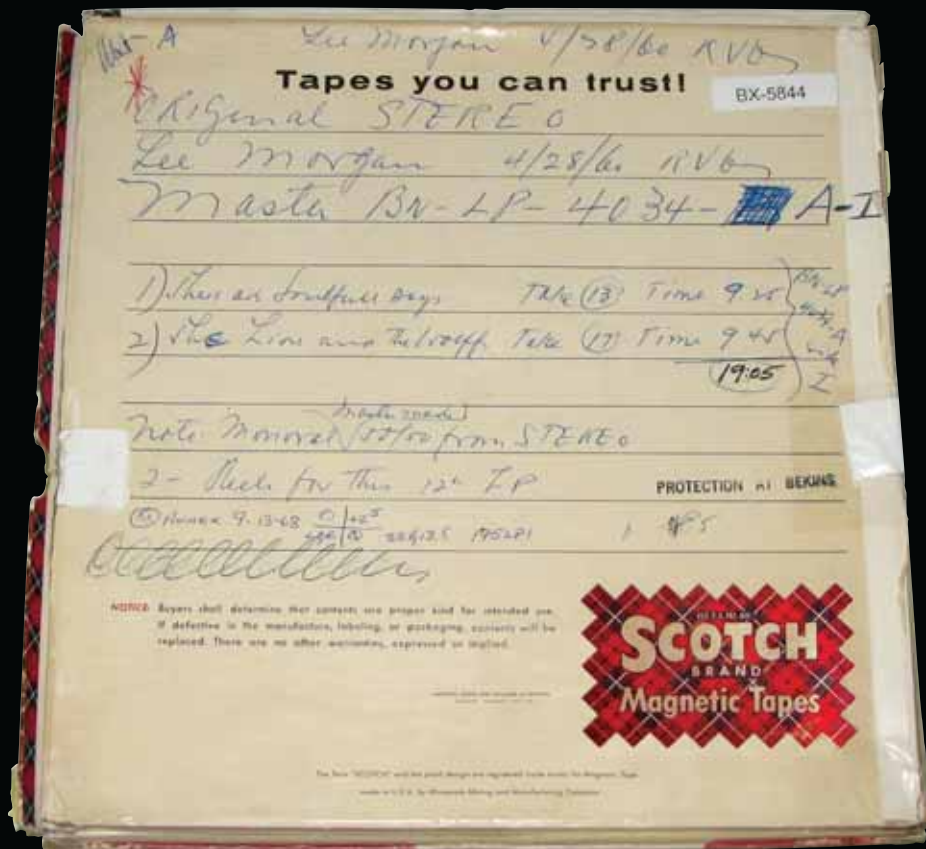 Lee Morgan 4/28/60 RVG
Tapes you can trust!
BX-5844
ORIGinal STEREO
Lee Morgan 4/28/60 RVG
Master BN-LP-4034- A-I
1) Take 13 Time 9 25
2) The Lion and Take 17 Time 9 45
19:05
Note Monoral 50/50 from STEREO
2- Reels for This 12" LP
PROTECTION AT BEKINS
9-13-68
NOTICE Buyers shall determine that contents are proper kind for intended use.
If defective in the manufacture, labeling, or packaging, contents will be
replaced. There are no other warranties, expressed or implied.
SCOTCH
BRAND
Magnetic Tapes
The term "SCOTCH" and the plaid design are registered trade marks for Magnetic Tape
made in U.S.A. by Minnesota Mining and Manufacturing Company